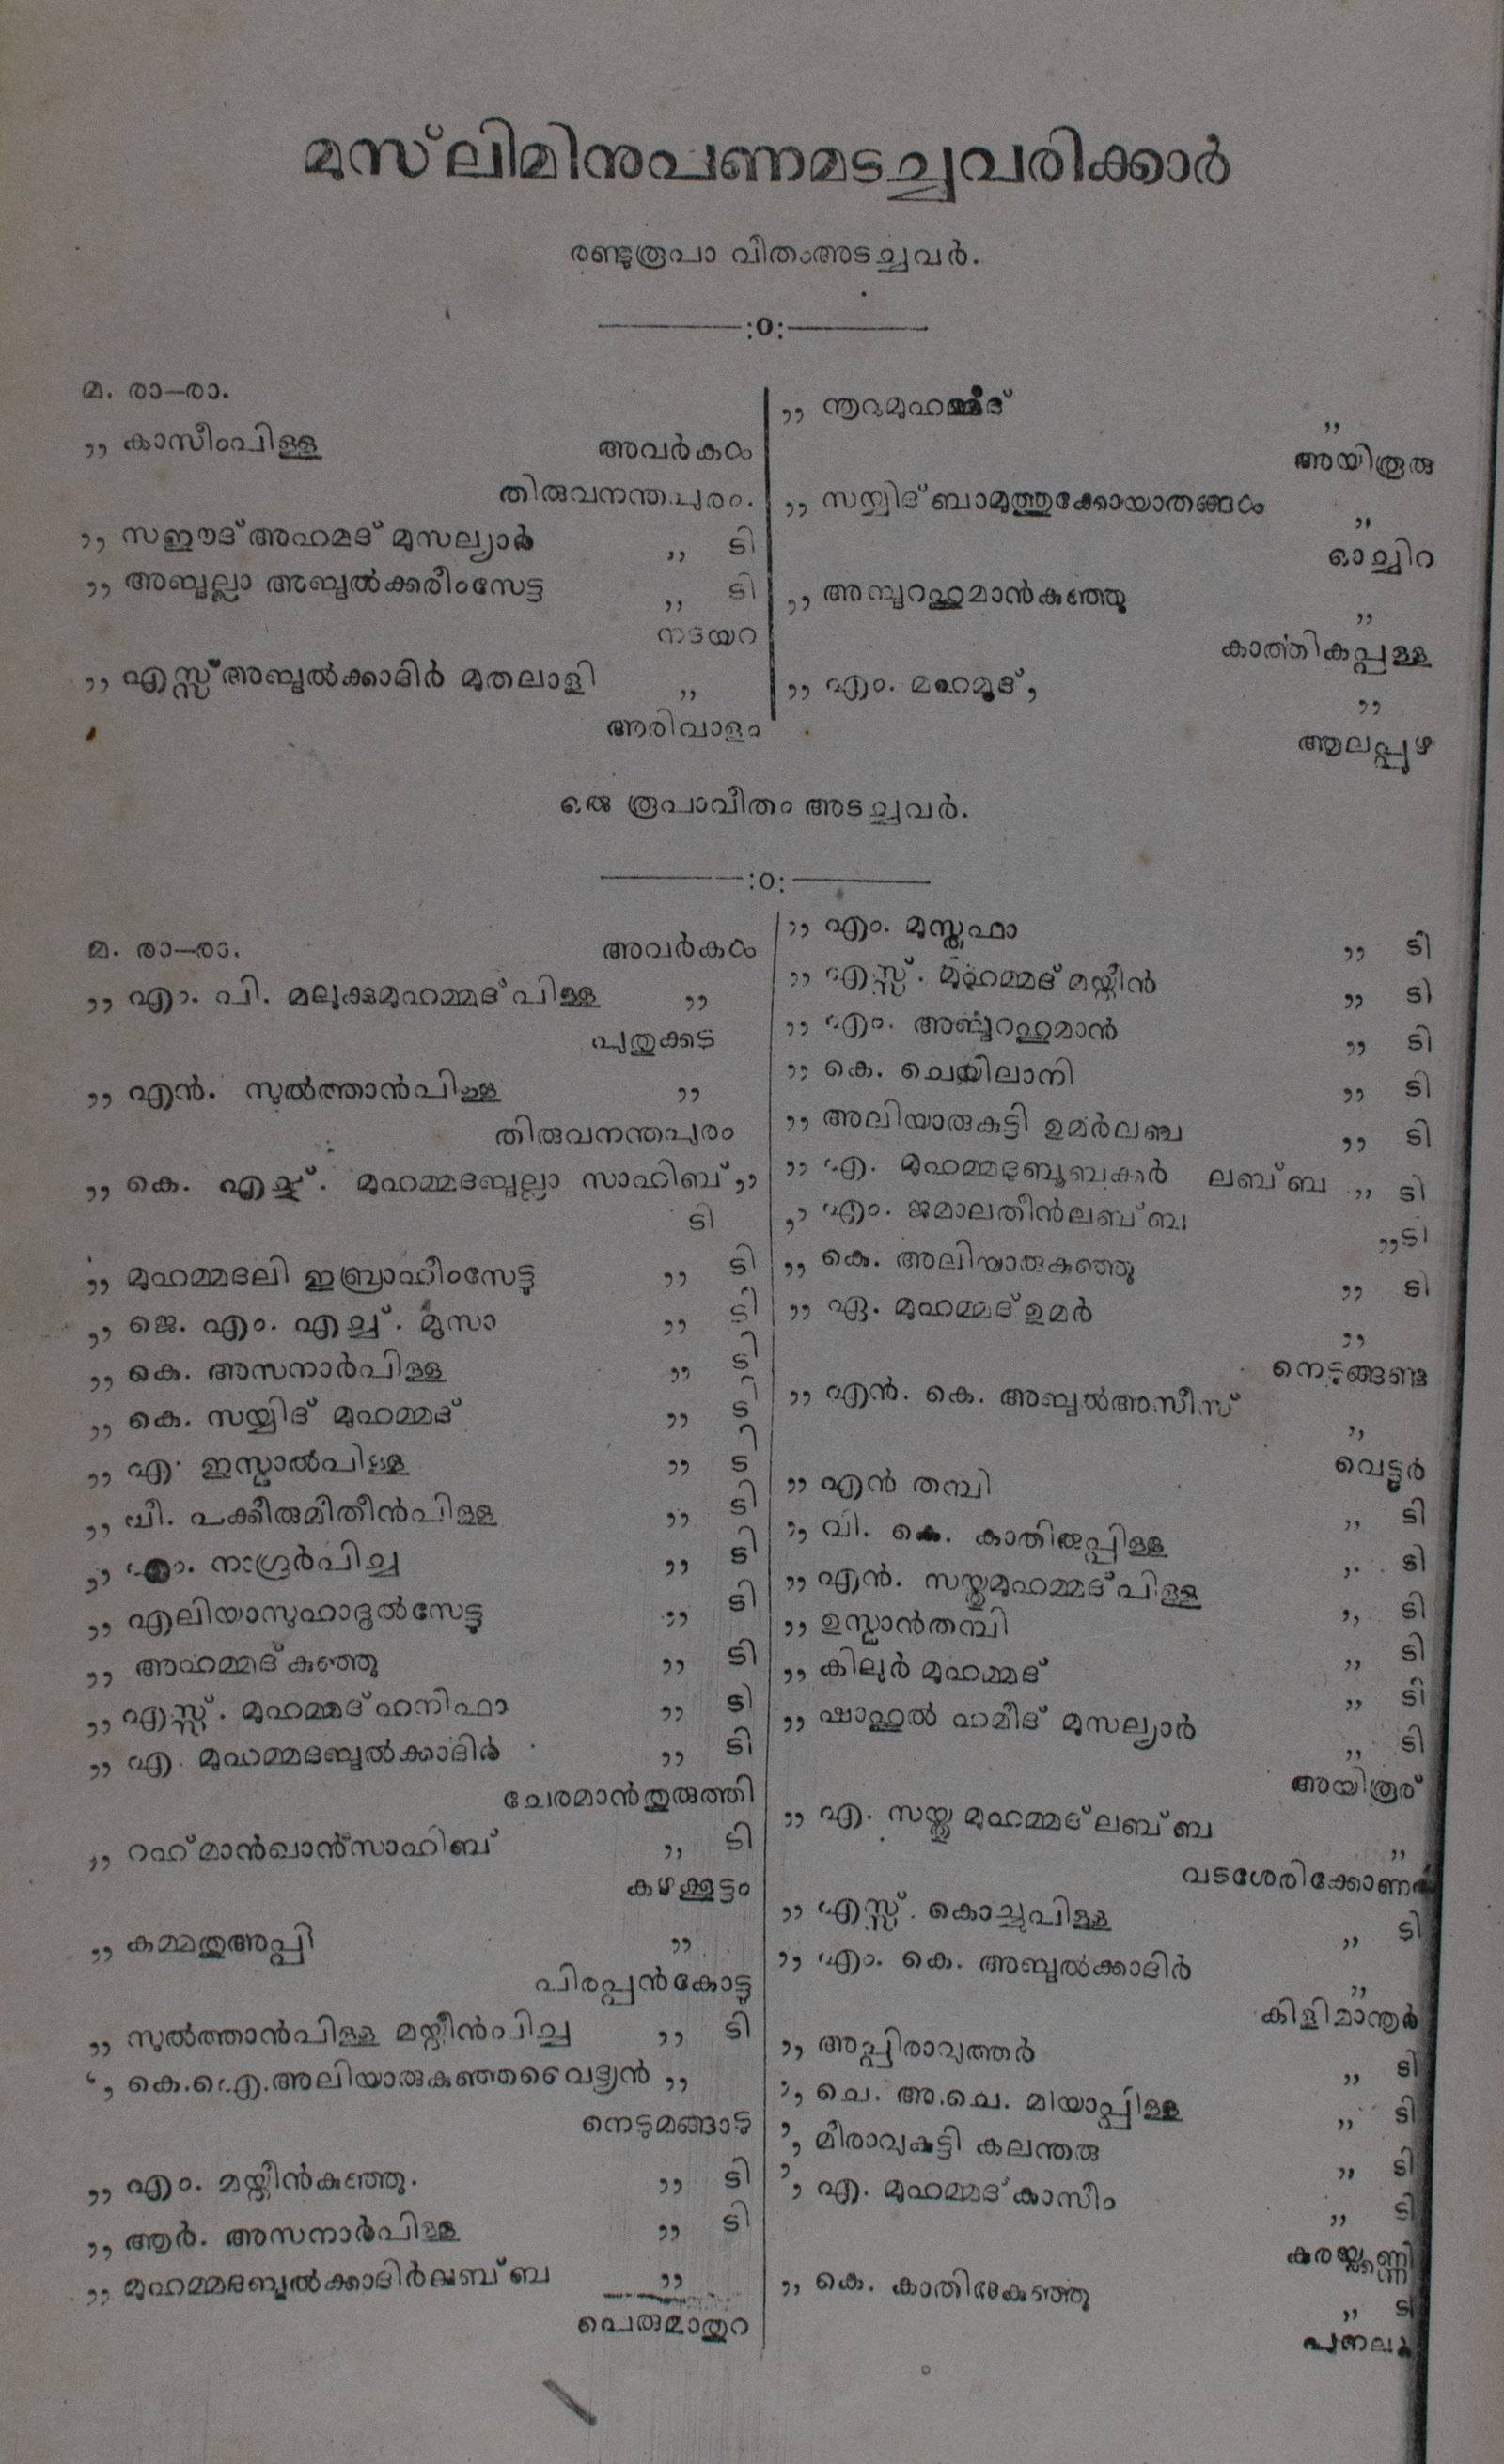 മുസ്ലിമിനുപണമടച്ചവരിക്കാർ
രണ്ടുരൂപാ വിതംഅടച്ചവർ.
:o:
മ. രാ—രാ.
,, കാസീംപിള്ള അവർകൾ
തിരുവനന്തപുരം.
,, സഈദ് അഹമദ് മുസല്യാർ ,, ടി
,, അബ്ദുല്ലാ അബ്ദുൽക്കരീംസേട്ട ,, ടി
നടയറ
,, എസ്സ് അബ്ദുൽക്കാദിർ മുതലാളി ,,
അരിവാളം
,, നൂറുമുഹമ്മദ് ,,
അയിരൂരു
,, സയ്യിദ് ബാമുത്തുക്കോയാതങ്ങൾ ,,
ഓച്ചിറ
,, അബ്ദുറഹുമാൻകുഞ്ഞു ,,
കാത്തികപ്പള്ളി
,, എം. മഹമൂദ്, ,,
ആലപ്പുഴ
ഒരു രൂപാവീതം അടച്ചവർ.
:o:
മ. രാ—രാ. അവർകൾ
,, എം. പി. മലുക്കുമുഹമ്മദ് പിള്ള ,,
പുതുക്കട
,, എൻ. സുൽത്താൻപിള്ള ,,
തിരുവനന്തപുരം
,, കെ. എച്ച്. മുഹമ്മദബ്ദുല്ലാ സാഹിബ് ,,
ടി
,, മുഹമ്മദലി ഇബ്രാഹീംസേട്ടു ,, ടി
,, ജെ. എം. എച്ച്. മുസാ ,, ടി
,, കെ. അസനാർപിള്ള ,, ടി
,, കെ. സയ്യിദ് മുഹമ്മദ് ,, ടി
,, എ. ഇസ്മാൽപിള്ള ,, ടി
,, വീ. പക്കീരുമിതീൻപിള്ള ,, ടി
,, എം. നാഗൂർപിച്ച ,, ടി
,, എലിയാസുഹാദൂൽസേട്ടു ,, ടി
,, അഹമ്മദ് കുഞ്ഞു ,, ടി
,, എസ്സ്. മുഹമ്മദ് ഹനിഫാ ,, ടി
,, എ. മുഹമ്മദബ്ദുൽക്കാദിർ ,, ടി
ചേരമാൻതുരുത്തി
,, റഹ്മാൻഖാൻസാഹിബ് ,, ടി
കഴക്കൂട്ടം
,, കമ്മതുഅപ്പി ,,
പിരപ്പൻകോട്ടു
,, സുൽത്താൻപിള്ള മയ്തീൻപിച്ച ,, ടി
,, കെ.ഐ.എ.അലിയാരുകുഞ്ഞവൈദ്യൻ ,,
നെടുമങ്ങാടു
,, എം. മയ്തീൻകുഞ്ഞു. ,, ടി
,, ആർ. അസനാർപിള്ള ,, ടി
,, മുഹമ്മദബ്ദുൽക്കാദിർലബ്ബ ,,
പെരുമാതുറ
,, എം. മുസ്തഫാ ,, ടി
,, എസ്സ്. മുഹമ്മദ് മയ്തീൻ ,, ടി
,, എം. അബ്ദുറഹുമാൻ ,, ടി
,, കെ. ചെയിലാനി ,, ടി
,, അലിയാരുകുട്ടി ഉമർലബ്ബ ,, ടി
,, എ. മുഹമ്മദുബൂബക്കർ ലബ്ബ ,, ടി
,, എം. ജമാലതീൻലബ്ബ ,, ടി
,, കെ. അലിയാരുകുഞ്ഞു ,, ടി
,, ഏ. മുഹമ്മദ് ഉമർ ,,
നെടുങ്ങണ്ട
,, എൻ. കെ. അബ്ദുൽഅസീസ് ,,
വെട്ടൂർ
,, എൻ തമ്പി ,, ടി
,, വി. കെ. കാതിരുപ്പിള്ള ,, ടി
,, എൻ. സയ്തുമുഹമ്മദ് പിള്ള ,, ടി
,, ഉസ്മാൻതമ്പി ,, ടി
,, കിലുർ മുഹമ്മദ് ,, ടി
,, ഷാഹുൽ ഹമീദ് മുസല്യാർ ,, ടി
അയിരൂര്
,, എ. സയ്തു മുഹമ്മദ് ലബ്ബ ,,
വടശേരിക്കോണം
,, എസ്സ്. കൊച്ചുപിള്ള ,, ടി
,, എം. കെ. അബ്ദുൽക്കാദിർ ,,
കിളിമാനൂർ
,, അപ്പിരാവുത്തർ ,, ടി
,, ചെ. അ.ചെ. മിയാപ്പിള്ള ,, ടി
,, മീരാവുകുട്ടി കലന്തരു ,, ടി
,, എ. മുഹമ്മദ് കാസീം ,, ടി
,, കെ. കാതിരുകുഞ്ഞു ,, ടി